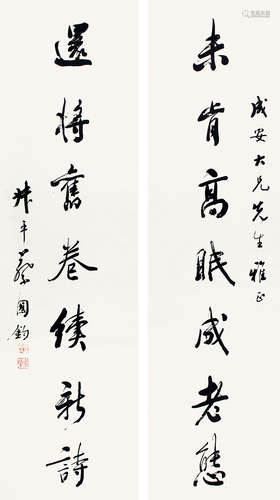 成安大兄先生雅正
未肯高眠成老態
還將舊卷續新詩
蔡國鈞